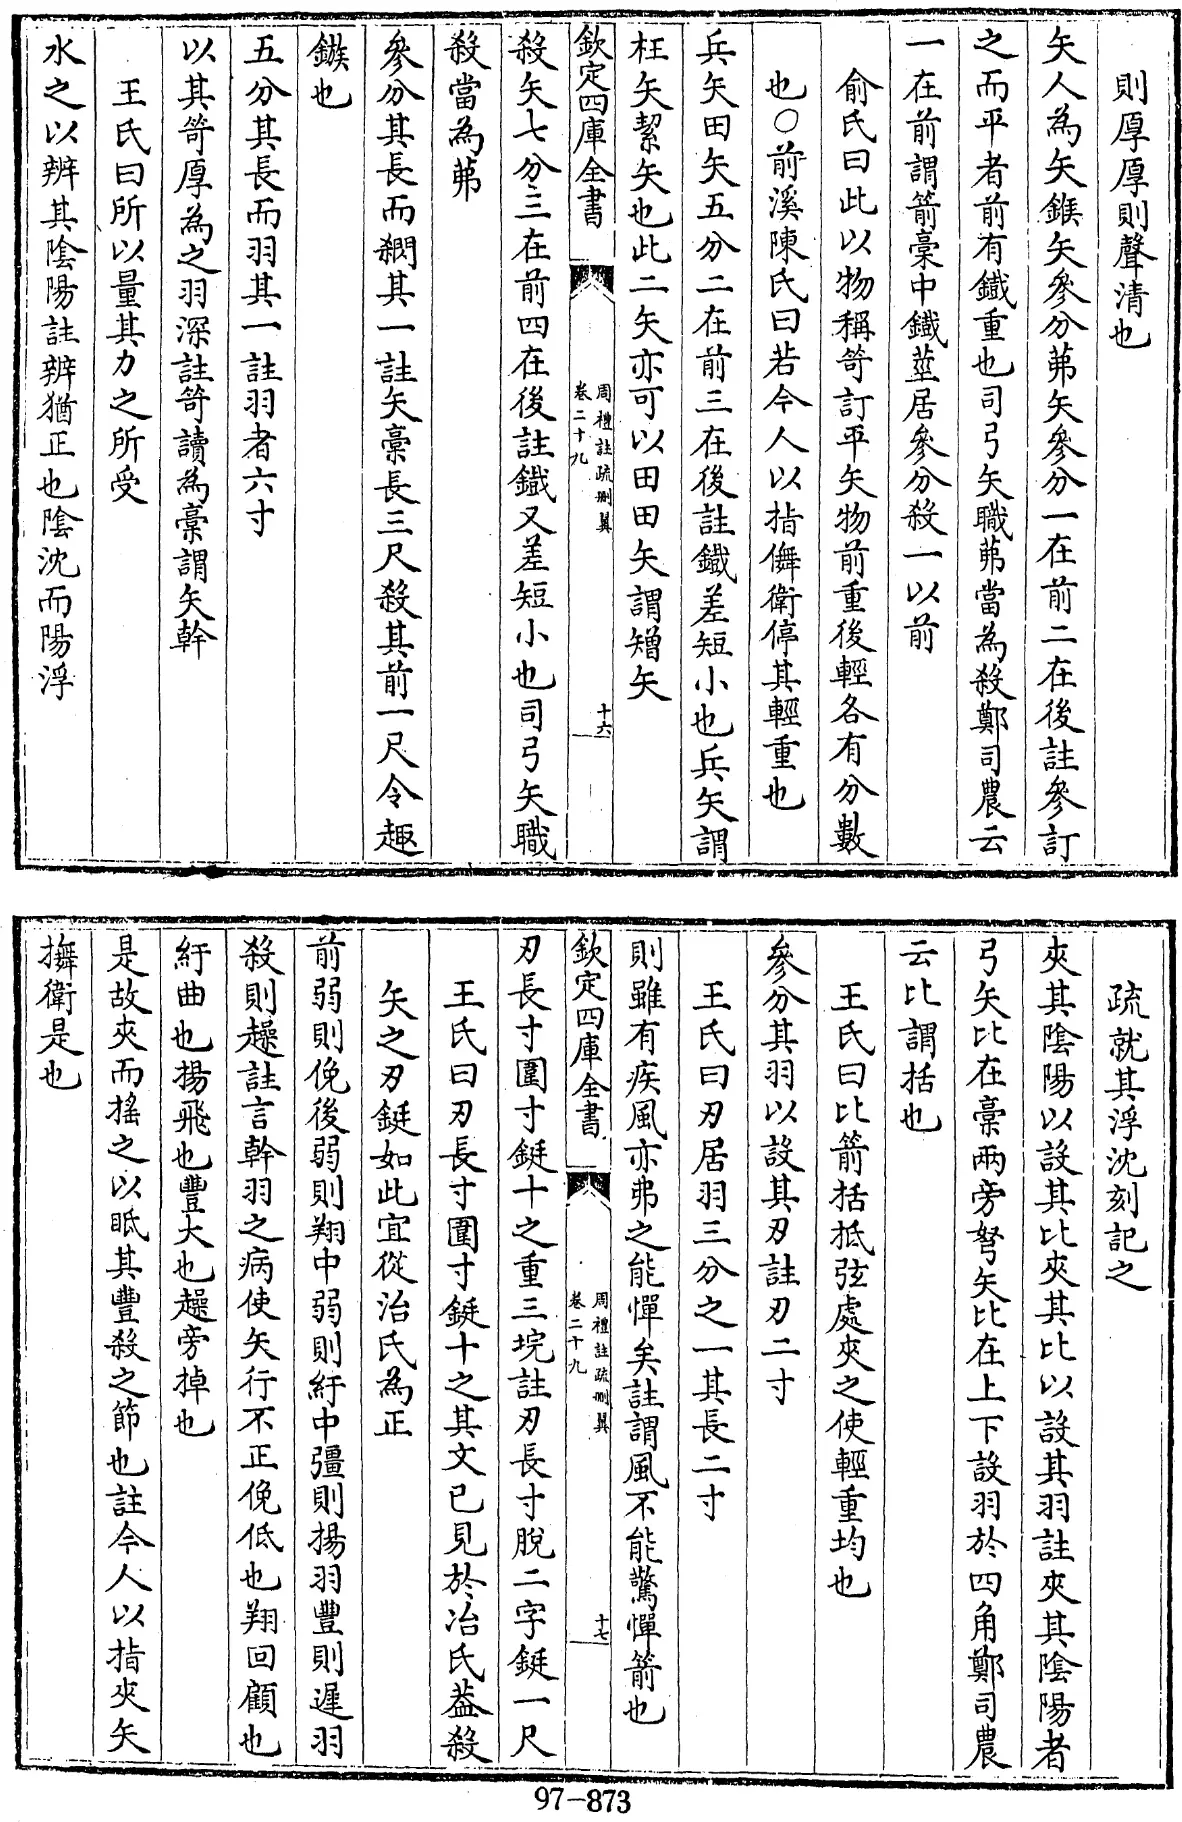 則厚厚則聲清也
矢人為矢鍭矢參分茀矢參分一在前二在後註參訂
之而平者前有鐵重也司弓矢職茀當為殺鄭司農云
一在前謂箭稾中鐵莖居參分殺一以前
俞氏曰此以物稱笴訂平矢物前重後輕各有分數
也○前溪陳氏曰若今人以指儛衛停其輕重也
兵矢田矢五分二在前三在後註鐵差短小也兵矢謂
枉矢絜矢也此二矢亦可以田田矢謂矰矢
欽定四庫全書
周禮註疏刪翼
卷二十九
十六
殺矢七分三在前四在後註鐵又差短小也司弓矢職
殺當為茀
參分其長而綱其一註矢稾長三尺殺其前一尺令趣
鏃也
五分其長而羽其一註羽者六寸
以其笴厚為之羽深註笴讀為稾謂矢幹
王氏曰所以量其力之所受
水之以辨其陰陽註辨猶正也陰沈而陽浮
疏就其浮沈刻記之
夾其陰陽以設其比夾其比以設其羽註夾其陰陽者
弓矢比在稾兩旁弩矢比在上下設羽於四角鄭司農
云比謂括也
王氏曰比箭括抵弦處夾之使輕重均也
參分其羽以設其刃註刃二寸
王氏曰刃居羽三分之一其長二寸
則雖有疾風亦弗之能憚矣註謂風不能驚憚箭也
欽定四庫全書
周禮註疏刪翼
卷二十九
十七
刃長寸圍寸鋌十之重三垸註刃長寸脫二字鋌一尺
王氏曰刃長寸圍寸鋌十之其文已見於冶氏葢殺
矢之刃鋌如此宜從冶氏為正
前弱則俛後弱則翔中弱則紆中彊則揚羽豐則遲羽
殺則趮註言幹羽之病使矢行不正俛低也翔回顧也
紆曲也揚飛也豐大也趮旁掉也
是故夾而搖之以眂其豐殺之節也註今人以指夾矢
㩳衛是也
97-873